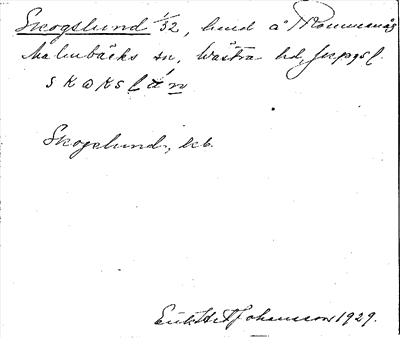 Skogslund 1/32, hmd å Rommenäs
Malmbäcks sn, Västra hd, Jkpgs l.
skoksl
Skogslund, kb.
Erik H A Johansson 1929.